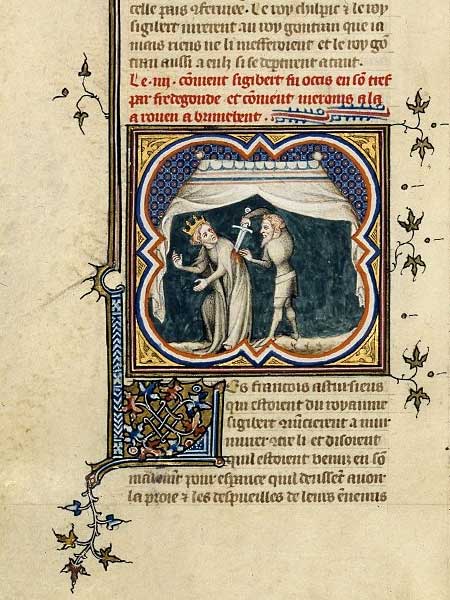 celle pais afermee. Le roy chilpic & le roy
sigibert iurerent au roy gontran que ia
mais riens ne li mefferoient et le roy gō
tran aussi a eulz si se departirent atant.
Le .iii. cōment sigibert fu occis en sō tref
par fredegonde et cōment meroveus ala
a rouen a brunehent.
Les francois austrasiens
qui estoient du royaume
sigibert cōmencierent a mur
murer & a li et disoient
quil estoient venus en sō
mandement pour esperance quil deussēt avoir
la proie & les despueilles de leurs enemis